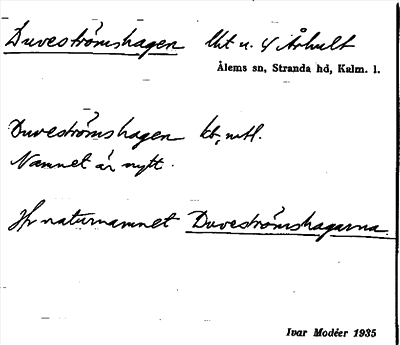 Duveströmshagen lht u. 4 Århult
Ålems sn, Stranda hd, Kalm. l.
Duveströmshagen kt, mtl.
Namnet är nytt.
Jfr naturnamnet Duveströmshagarna.
Ivar Modéer 1935